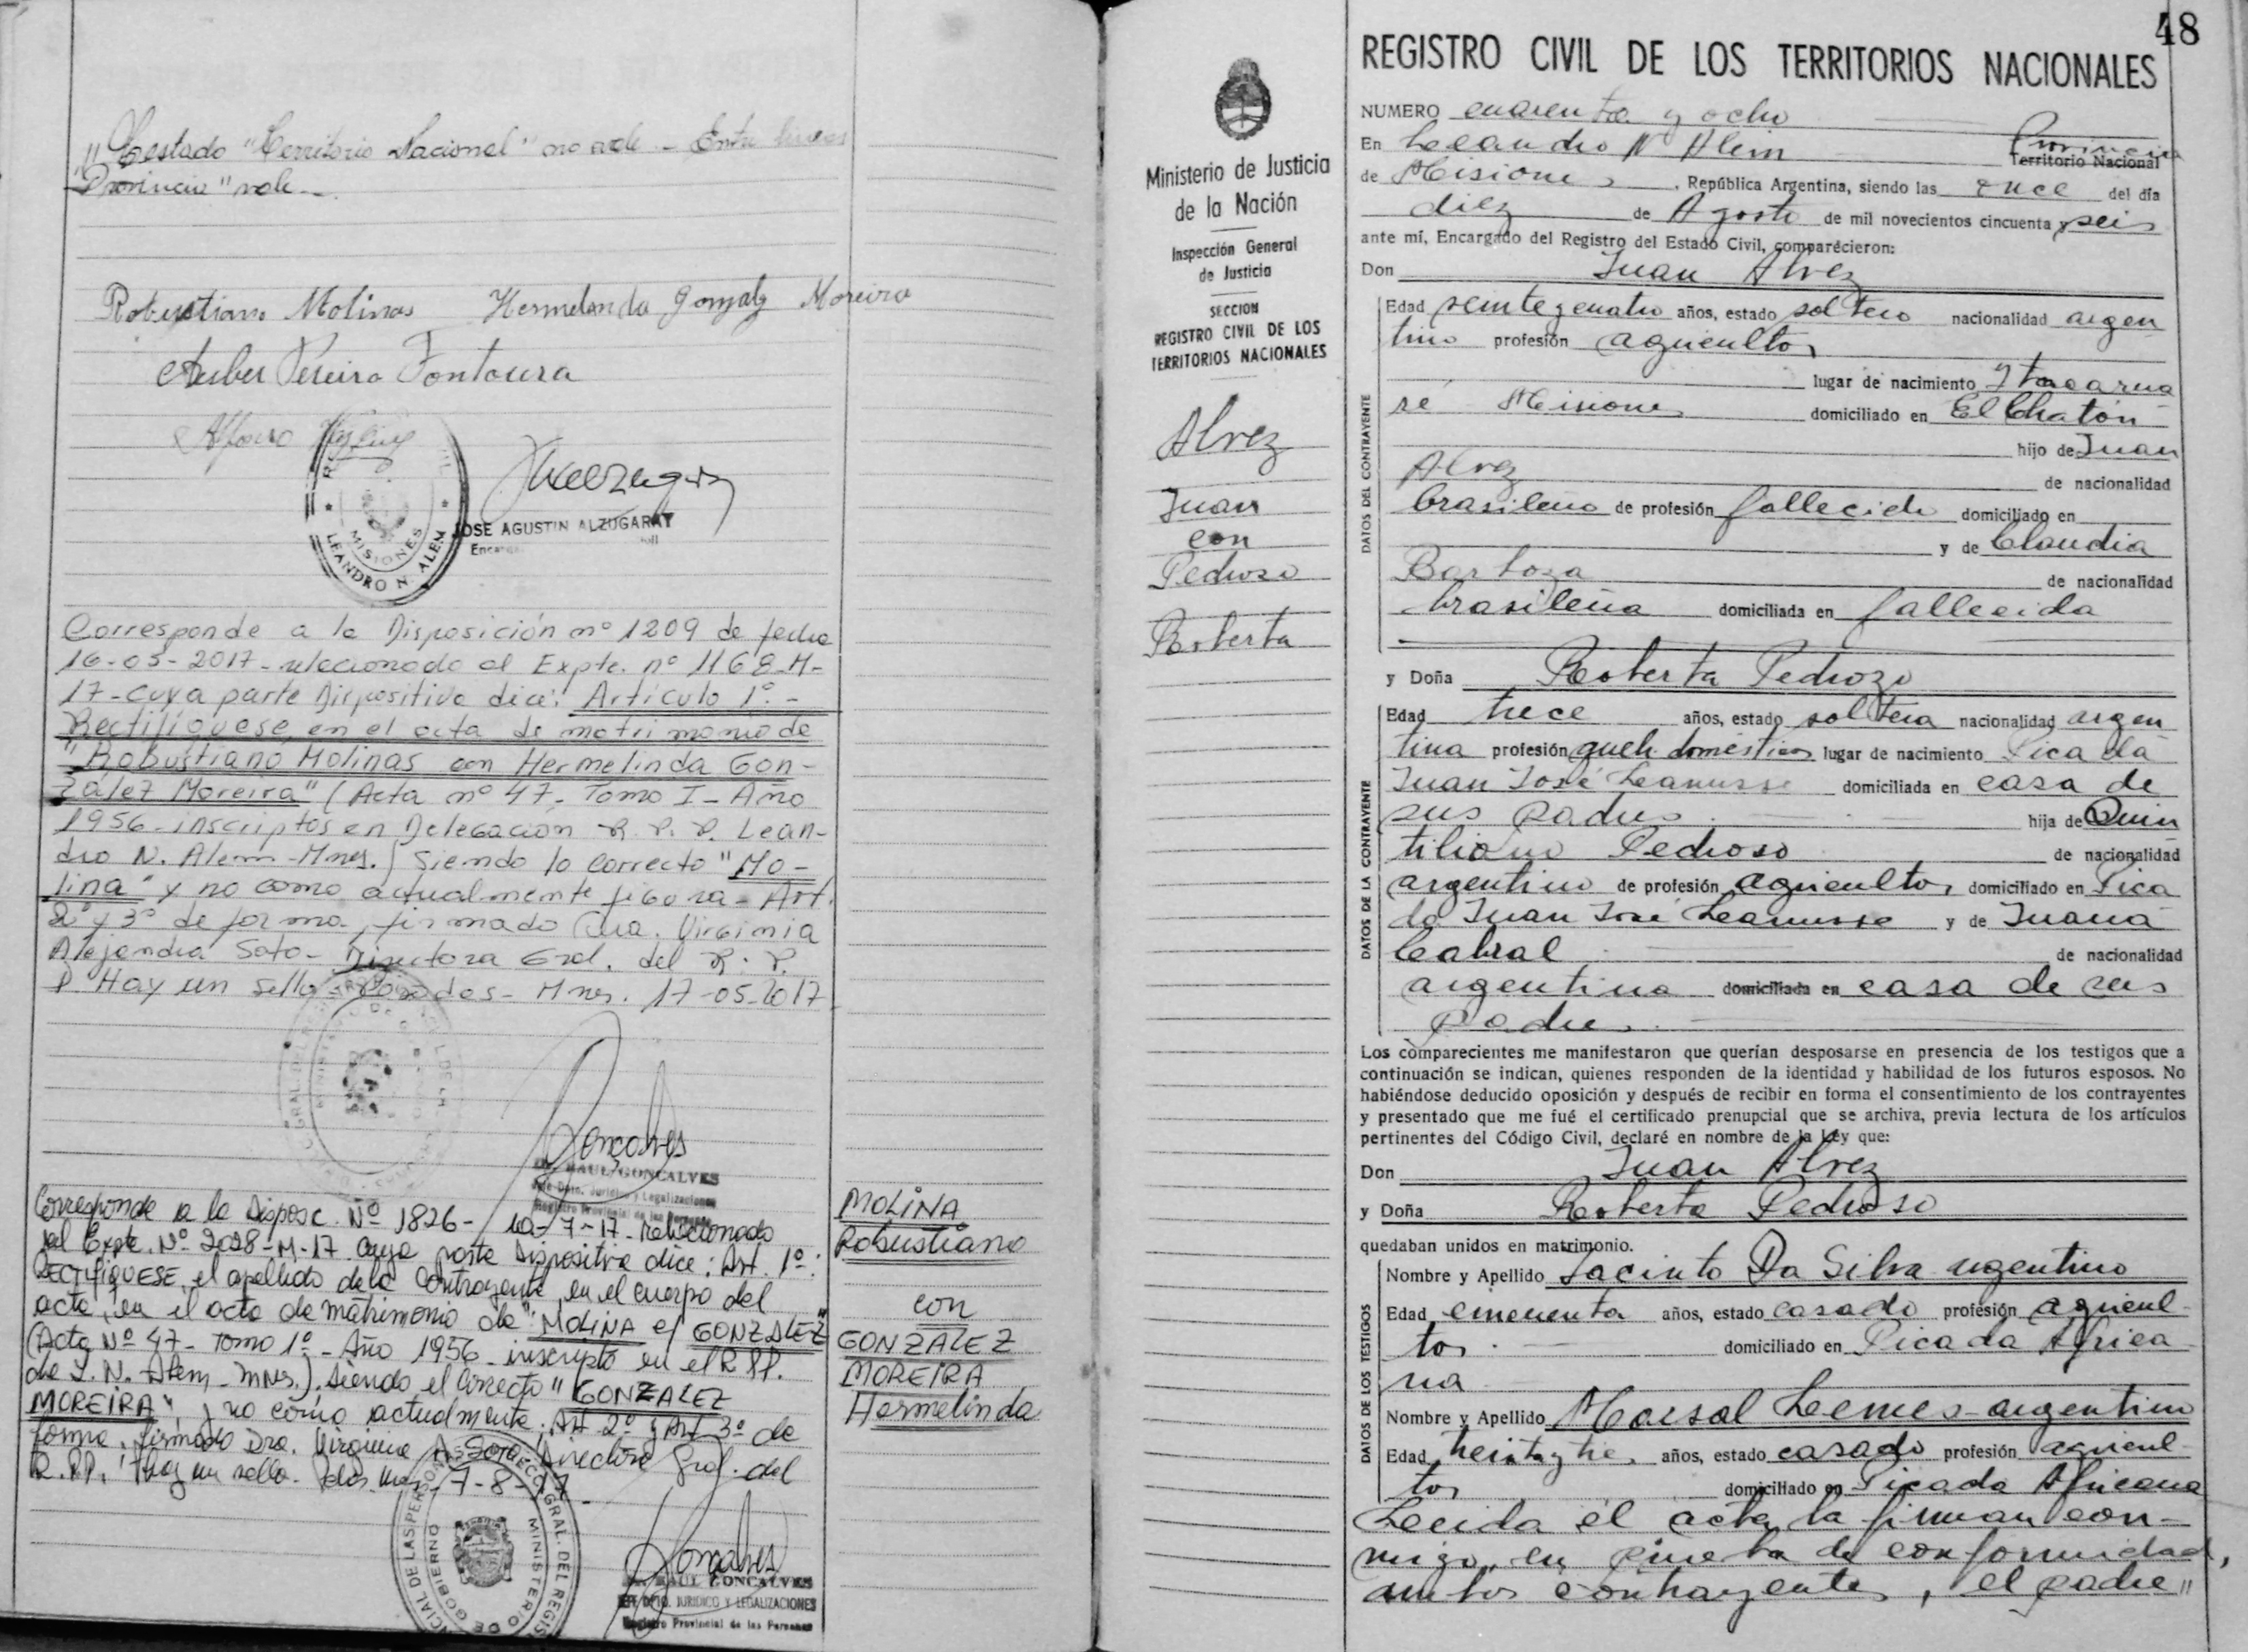 "Testado "Territorio Nacional" no vale - Entre lineas
"Provincia" vale -
Robustiano Molinas Hermelinda Gonzalez Moreira
Auber Pereira Fontoura
Alfonso
MISIONES
LEANDRO N. ALEM
JOSE AGUSTIN ALZUGARAY
Corresponde a la Disposición nº 1209 de fecha
16-05-2017 - relacionado al Expte. nº 1168-M-
17 - cuya parte Dispositiva dice: Artículo 1º.-
Rectifíquese en el acta de matrimonio de
"Robustiano Molinas con Hermelinda Gon-
zález Moreira" (Acta nº 47 - Tomo I - Año
1956 - inscriptos en Delegación R. P. P. Lean-
dro N. Alem - Mnes.) Siendo lo correcto "Mo-
lina" y no como actualmente figura - Art.
2º y 3º de forma, firmado Dra. Virginia
Alejandra Soto - Directora Gral. del R. P.
P Hay un sello Posadas - Mnes. 17-05-2017.
Goncalves
Dr. RAUL GONCALVES
Jefe Dpto. Jurídico y Legalizaciones
Registro Provincial de las Personas
Corresponde a la Disposc. Nº 1826 - 10-7-17 - Relacionado
al Expte. Nº 2028-M-17 cuya parte Dispositiva dice: Art. 1º:
RECTIFIQUESE, el apellido de la Contrayente, en el cuerpo del
acta, en el acta de matrimonio de "MOLINA c/ GONZALEZ"
(Acta Nº 47 - Tomo 1º - Año 1956 - inscripto en el R.P.P.
de L. N. Alem - Mnes.). Siendo el Correcto "GONZALEZ
MOREIRA", y no como actualmente. Art 2º y Art 3º de
forma, firmado Dra. Virginia A. Soto Directora Gral. del
R.P.P. Hay un sello. Pdas. Mnes. 7-8-17
MOLINA
Robustiano
con
GONZALEZ
MOREIRA
Hermelinda
Goncalves
Dr. RAUL GONCALVES
JEFE DPTO. JURIDICO Y LEGALIZACIONES
Registro Provincial de las Personas
48
REGISTRO CIVIL DE LOS TERRITORIOS NACIONALES
Ministerio de Justicia
de la Nación
Inspección General
de Justicia
SECCION
REGISTRO CIVIL DE LOS
TERRITORIOS NACIONALES
Alvez
Juan
con
Pedroso
Roberta
NUMERO cuarenta y ocho
Provincia
En Leandro N Alem Territorio Nacional
de Misiones, República Argentina, siendo las once del día
diez de Agosto de mil novecientos cincuenta y seis
ante mí, Encargado del Registro del Estado Civil, comparecieron:
Don Juan Alvez
DATOS DEL CONTRAYENTE
Edad veintecuatro años, estado soltero nacionalidad argen
tino profesión agricultor
lugar de nacimiento Itacarua
ré Misiones domiciliado en El Chatón
hijo de Juan
Alvez de nacionalidad
brasileño de profesión fallecido domiciliado en
y de Claudia
Barboza de nacionalidad
brasileña domiciliada en fallecida
y Doña Roberta Pedrozo
DATOS DE LA CONTRAYENTE
Edad trece años, estado soltera nacionalidad argen
tina profesión queh. domésticos lugar de nacimiento Picada
Juan José Lanusse domiciliada en casa de
sus padres hija de Quin
tiliano Pedroso de nacionalidad
argentino de profesión agricultor domiciliado en Pica
da Juan José Lanusse y de Juana
Cabral de nacionalidad
argentina domiciliada en casa de sus
padres.
Los comparecientes me manifestaron que querían desposarse en presencia de los testigos que a
continuación se indican, quienes responden de la identidad y habilidad de los futuros esposos. No
habiéndose deducido oposición y después de recibir en forma el consentimiento de los contrayentes
y presentado que me fué el certificado prenupcial que se archiva, previa lectura de los artículos
pertinentes del Código Civil, declaré en nombre de la Ley que:
Don Juan Alvez
y Doña Roberta Pedroso
quedaban unidos en matrimonio.
DATOS DE LOS TESTIGOS
Nombre y Apellido Jacinto Da Silva argentino
Edad cincuenta años, estado casado profesión agricul-
tor. domiciliado en Picada Africa
na
Nombre y Apellido Marsal Lemes argentino
Edad treintaytres años, estado casado profesión agricul-
tor domiciliado en Picada Africana
Leída el acta, la firman con-
migo, en prueba de conformidad,
ambos contrayentes, el padre "